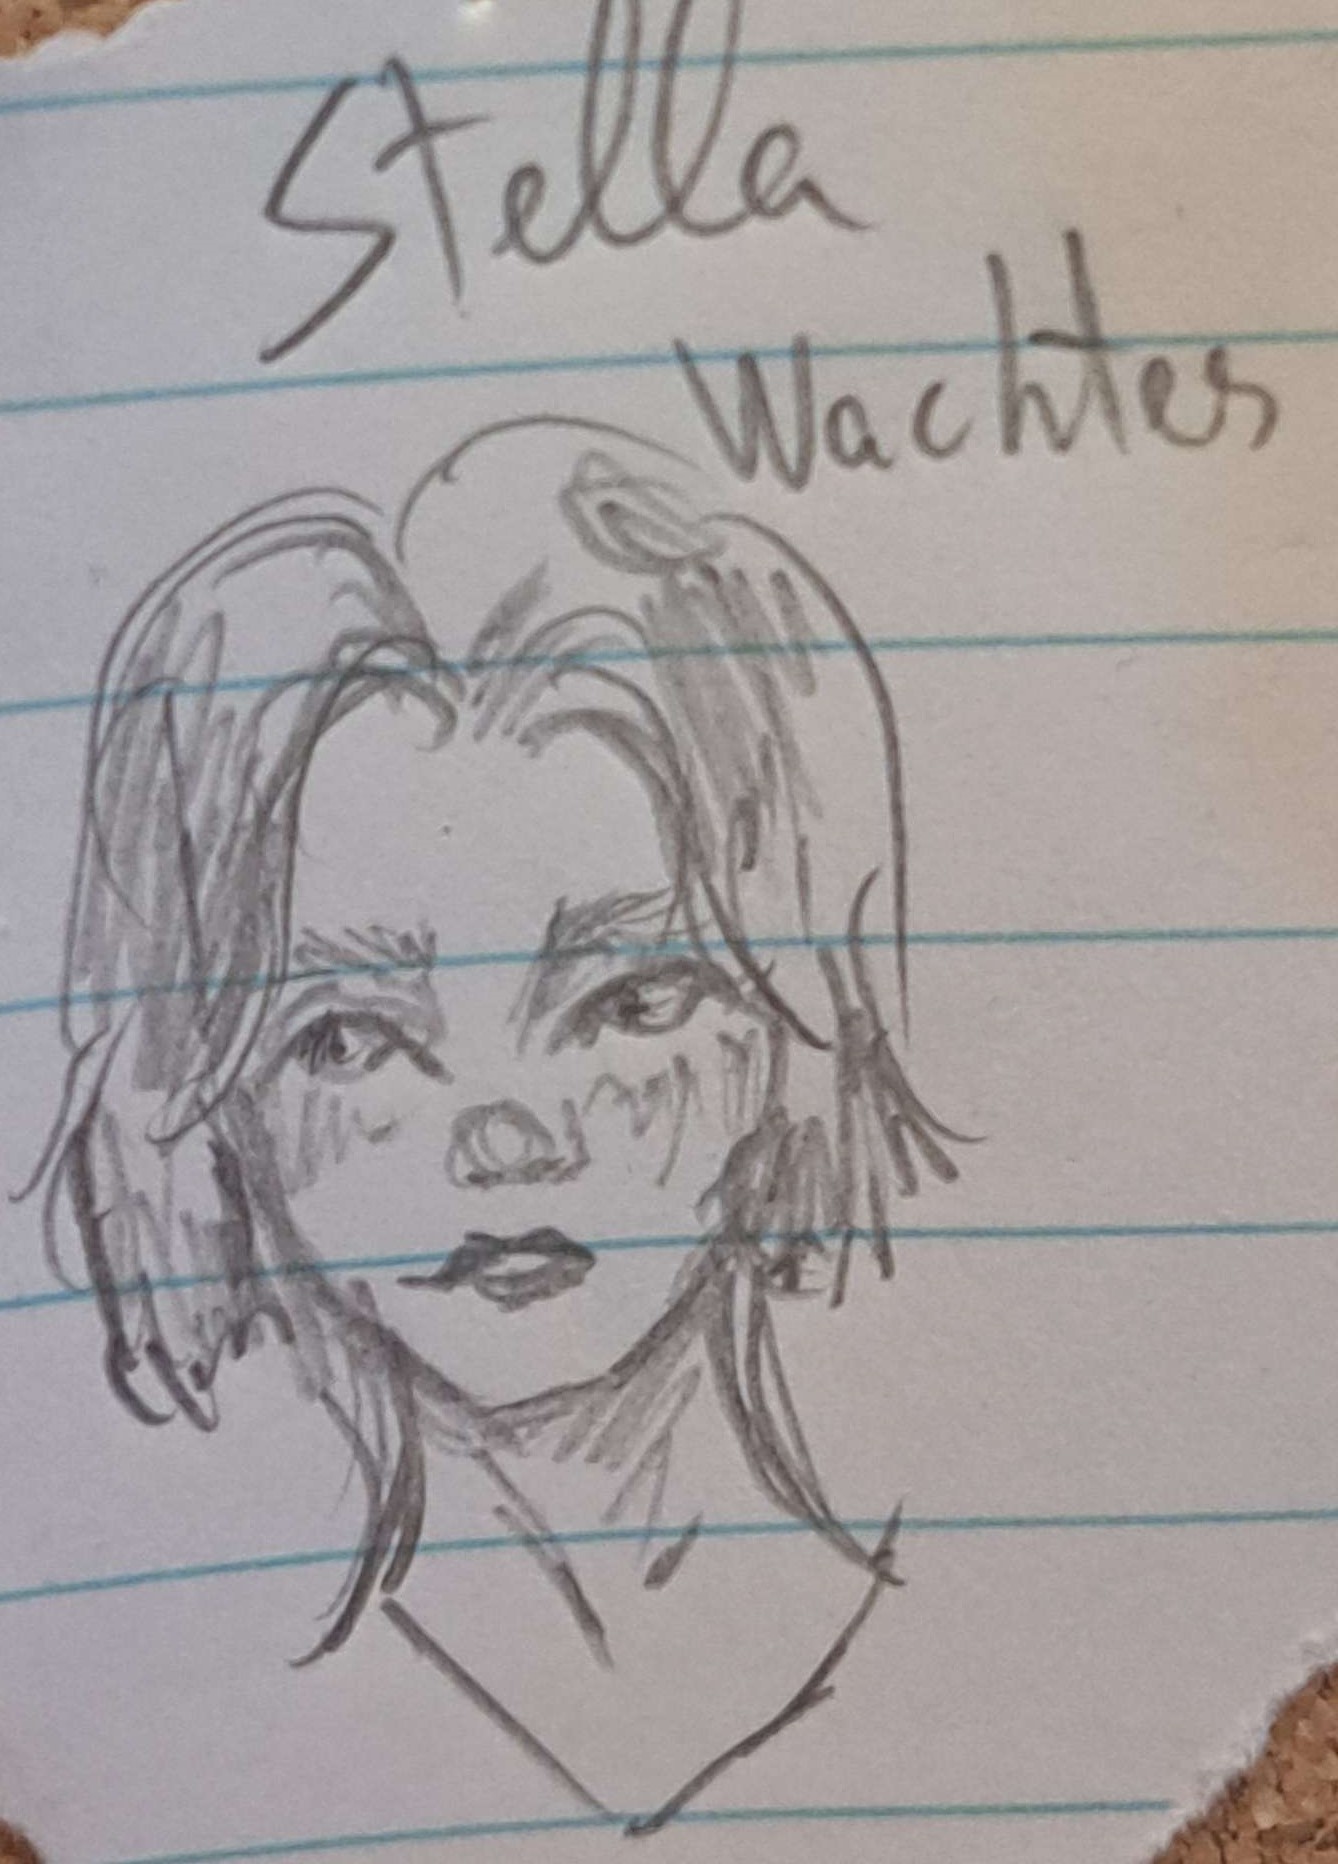 Stella
Wachter